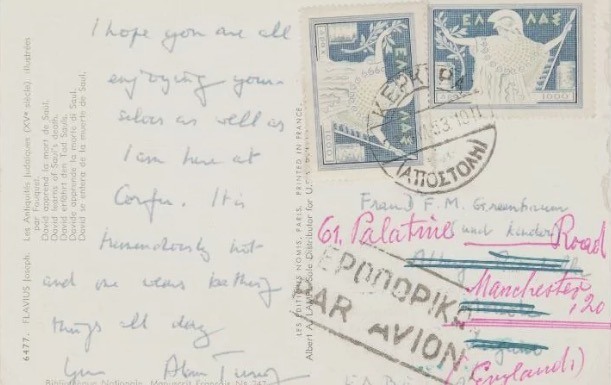 I hope you are all
enjoying your-
selves as well as
I am here at
Corfu. It is
tremendously hot
and one wears bathing
things all day
Yours Alan Turing
6477. FLAVIUS Joseph. Les Antiquités Judaïques (XVe siècle) illustrées
par Fouquet.
David apprend la mort de Saül.
David learns of Saul's death.
David erfährt den Tod Sauls.
Davide apprende la morte di Saul.
David se entera de la muerte de Saul.
Bibliothèque Nationale. Manuscrit Français No 247
LES EDITIONS NOMIS, PARIS. PRINTED IN FRANCE.
Albert A. Distributor for U.
ΕΛΛΑΣ
ΕΛ ΛΑΣ
1600
ΚΕΡΚΥΡΑ
53
ΑΠΟΣΤΟΛΗ
Frau F. M. Greenbaum
und Kinder
61, Palatine Road
Manchester, 20
(England)
ΕΡΟΠΟΡΙΚΩ
PAR AVION